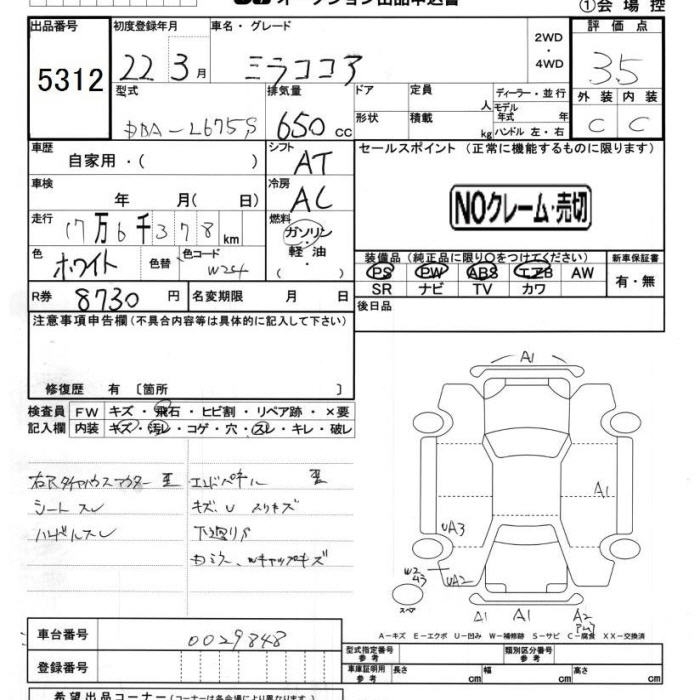 オークション出品申込書
①会場控
出品番号 初度登録年月 車名・グレード 2WD ・ 4WD 評価点
5312 22年 3月 ミラココア 3.5
型式 排気量 ドア 定員 人 ディーラー・並行 外装 内装
DBA-L675S 650cc 形状 積載 kg モデル年式 年 ハンドル 左・右 C C
車歴 自家用・( ) シフト AT セールスポイント (正常に機能するものに限ります)
車検 年 月(日) 冷房 AC
NOクレーム・売切
走行 17万6千378km 燃料 ガソリン・軽油( )
色 ホワイト 色替 色コード W24 装備品 (純正品に限り○をつけてください) 新車保証書
PS PW ABS エアB AW 有・無
SR ナビ TV カワ
R券 8730円 名変期限 月 日 後日品
注意事項申告欄 (不具合内容等は具体的に記入して下さい)
修復歴 有 〔箇所 〕
検査員 FW キズ・飛石・ヒビ割・リペア跡・×要
記入欄 内装 キズ・汚レ・コゲ・穴・スレ・キレ・破レ
右Rタイヤハウスアウター 歪 エンドパネル 歪
シートスレ キズ、U スリキズ
ハンドルスレ 下廻りS
Wキャップキズ
A1
A1
UA3
W2
43
UA2
スペア
A1 A1 A2
A-キズ E-エクボ U-凹み W-補修跡 S-サビ C-腐食 XX-交換済
車台番号 0029848
型式指定番号 参考 類別区分番号 参考
登録番号 車庫証明用 参考 長さ cm 幅 cm 高さ cm
希望出品コーナー (コーナーは各会場により異なります)